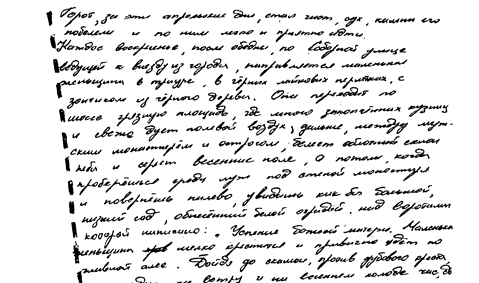 Город, за эти апрельские дни, стал чист, сух, камни его
побелели и по ним легко и приятно идти.
Каждое воскресенье, после обедни, по Соборной улице
ведущей к выезду из города, направляется маленькая
женщина в трауре, в чёрных лайковых перчатках, с
зонтиком из чёрного дерева. Она переходит по
шоссе грязную площадь, где много закопчённых кузниц
и свежо дует полевой воздух; дальше, между муж-
ским монастырём и острогом, белеет облачный склон
неба и сереет весеннее поле, а потом, когда
проберёшься среди луж под стеной монастыря
и повернёшь налево, увидишь как бы большой,
низкий сад, обнесённый белой оградой, над воротами
которой написано: "Успение божией матери. Маленькая
женщина мелко крестится и привычно идёт по
главной аллее. Дойдя до скамьи, против дубового креста,
на ветру и на весеннем холоде час, два